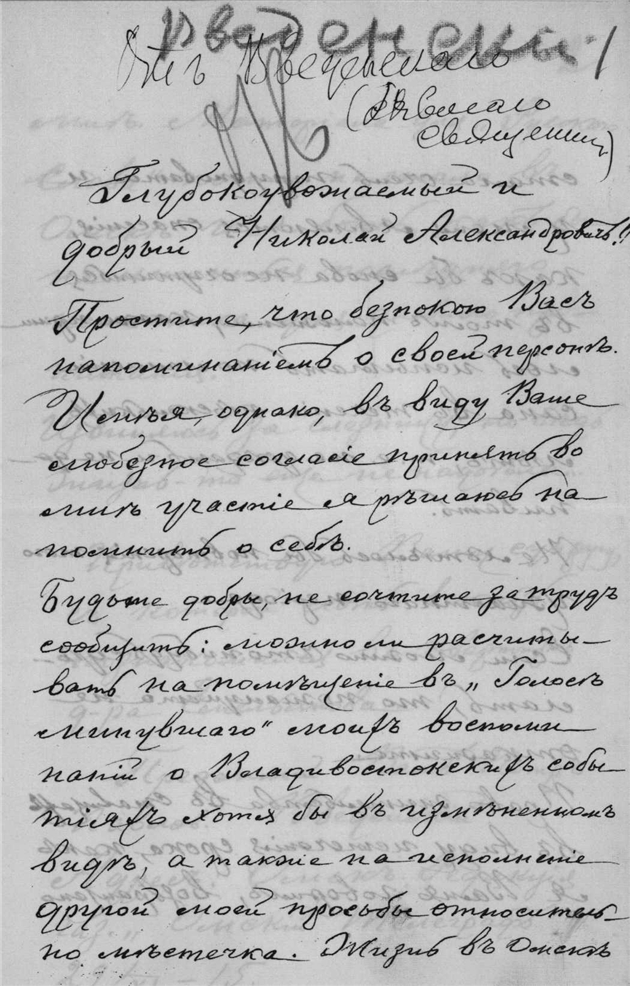 Введенский
Отъ Введенскаго
(бывшаго
священника)
Глубокоуважаемый и
добрый Николай Александровичъ!!
Простите, что безпокою Васъ
напоминаніемъ о своей персонѣ.
Имѣя, однако, въ виду Ваше
любезное согласіе принять во
мнѣ участіе я рѣшаюсь на
помнить о себѣ.
Будьте добры, не сочтите за трудъ
сообщить: можно ли расчиты-
вать на помѣщеніе въ „Голосѣ
минувшаго" моихъ воспоми
наній о Владивостокскихъ собы
тіяхъ хотя бы въ измѣненномъ
видѣ, а также на исполненіе
другой моей просьбы относитель-
но мѣстечка. Жизнь въ Омскѣ